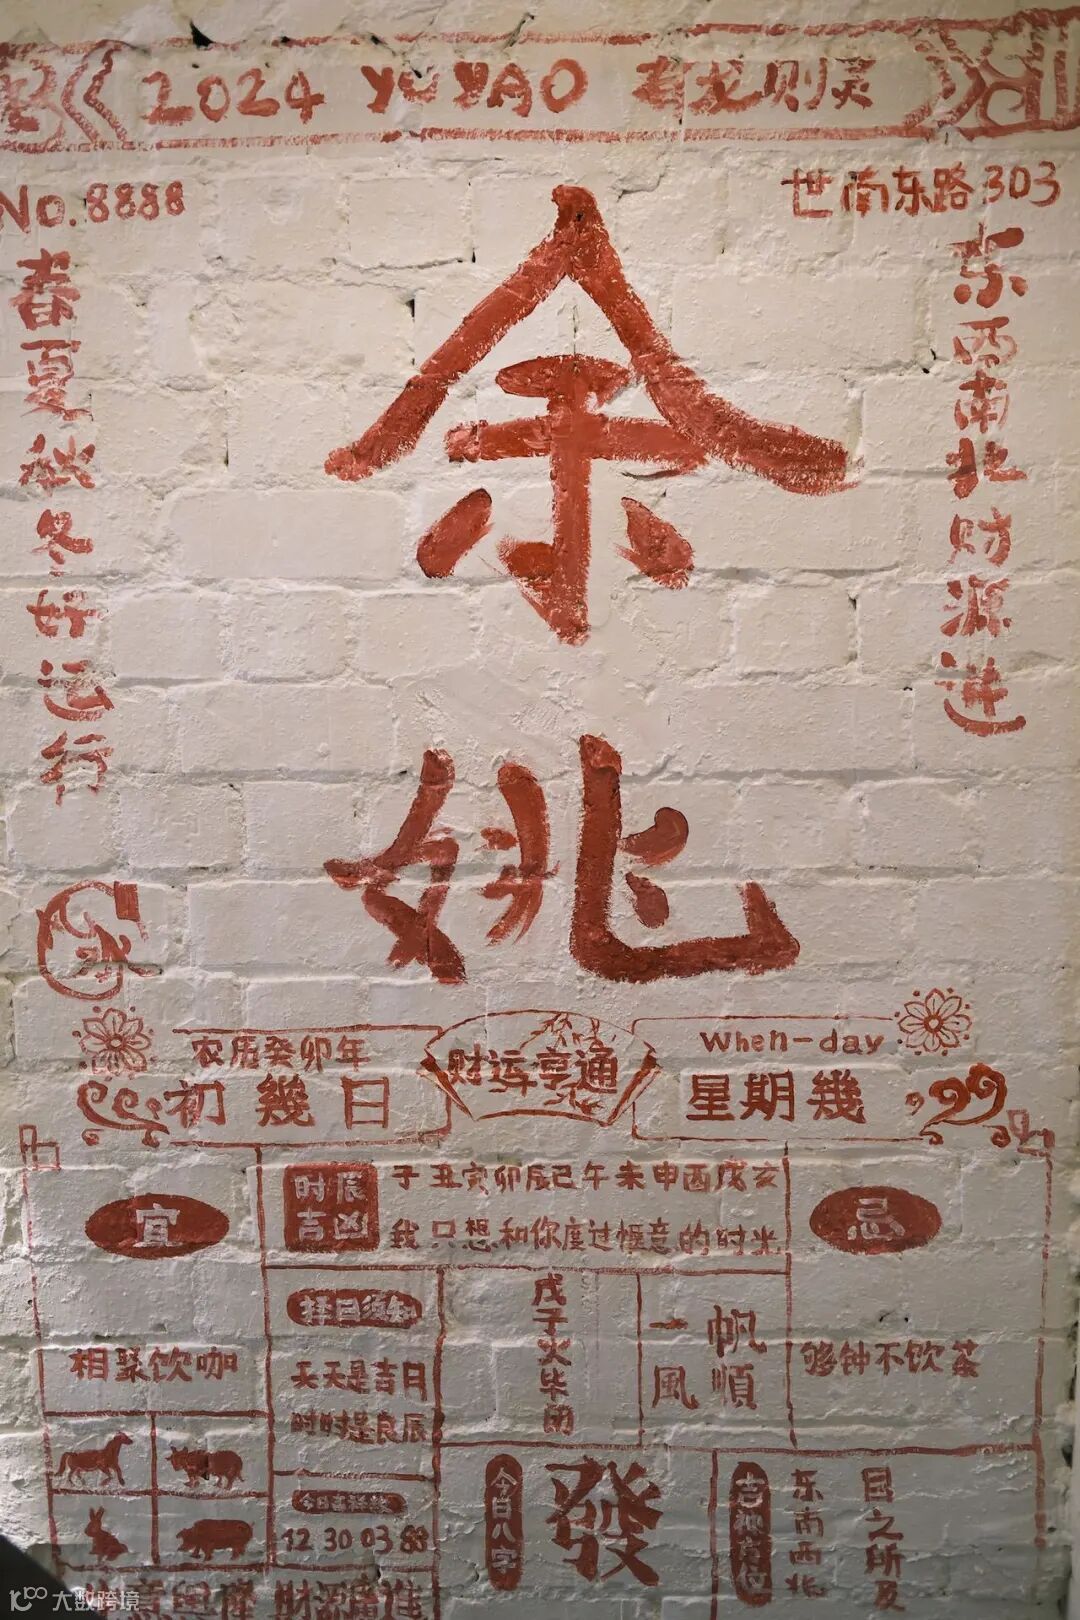 2024 YUYAO 有龙则灵
No.8888
世南东路303
春夏秋冬好运行
东西南北财源进
余
姚
农历癸卯年
初幾日
财运亨通
When-day
星期幾
宜
时辰
吉凶
子丑寅卯辰巳午未申酉戌亥
我只想和你度过惬意的时光
忌
相聚饮咖
择日须知
天天是吉日
时时是良辰
戊子火毕闭
一帆
風順
够钟不饮茶
12 30 03 88
今日八字
發
吉神方位
东南西北
目之所及
財源廣進
大数跨境